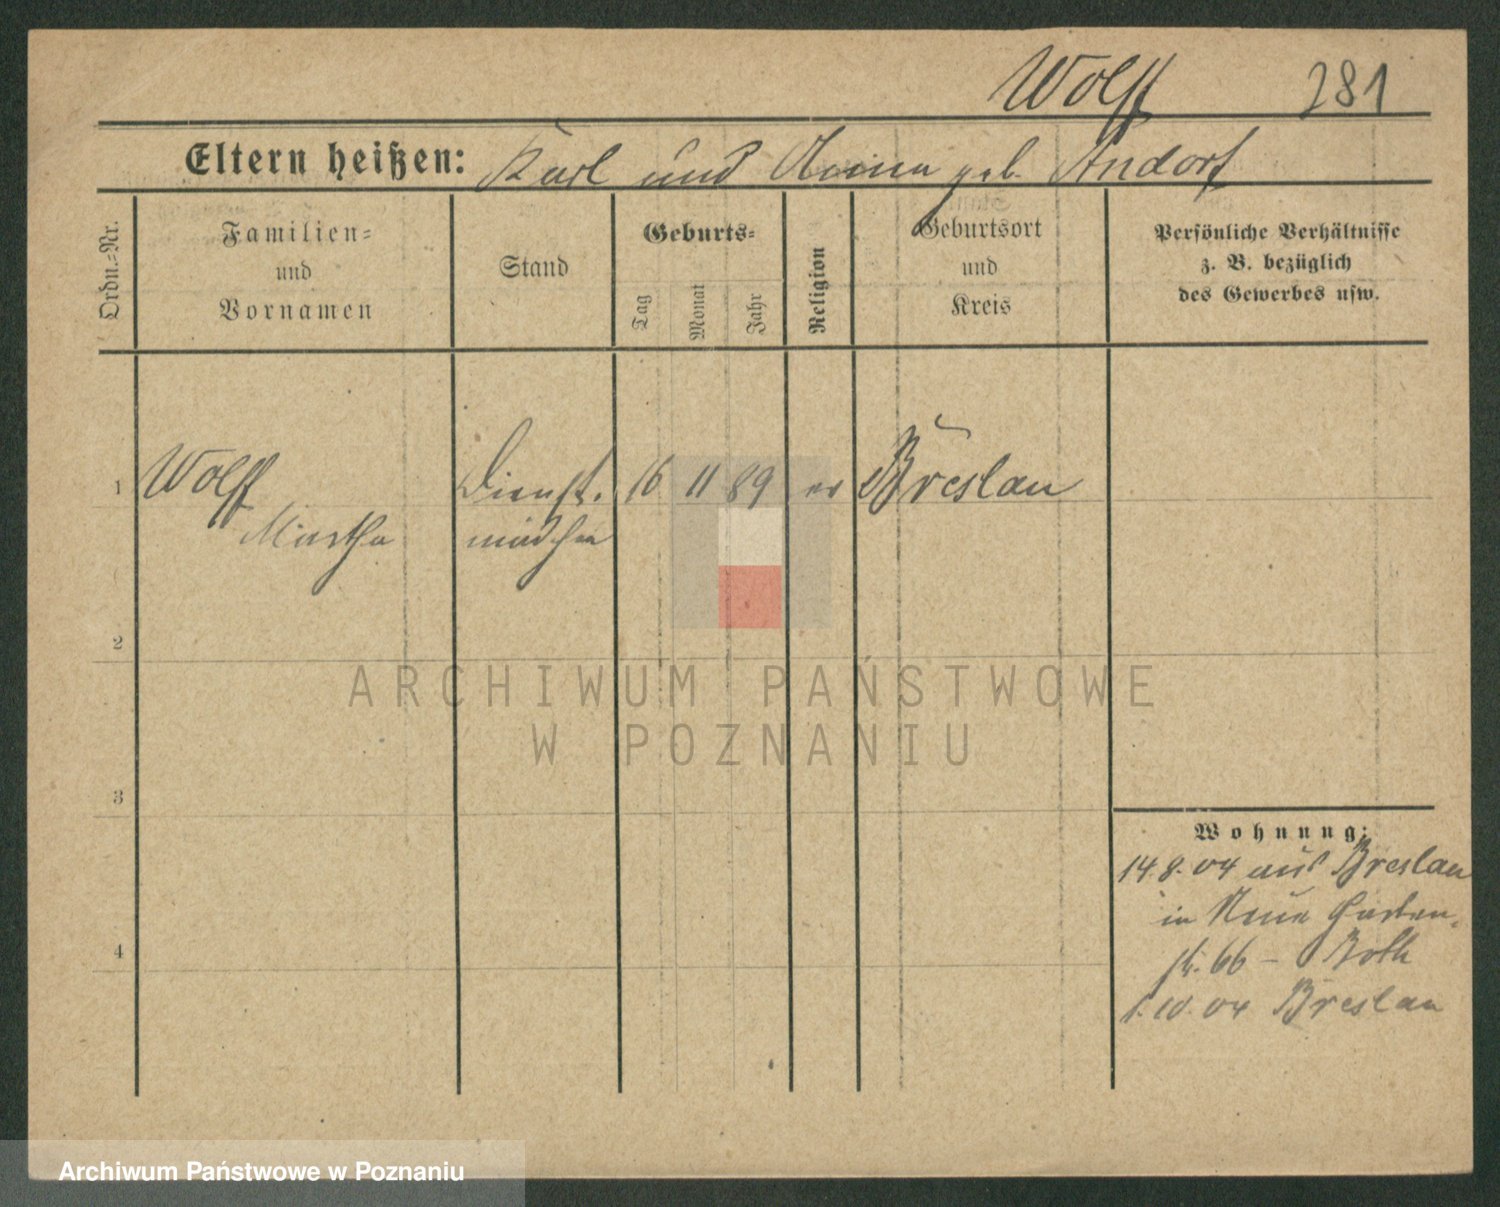 Wolff 281
Eltern heißen: Karl und Anna geb. Andorf
Ordn.=Nr.
Familien=
und
Vornamen
Stand
Geburts=
Tag
Monat
Jahr
Religion
Geburtsort
und
Kreis
Persönliche Verhältnisse
z. B. bezüglich
des Gewerbes usw.
1 Wolff Dienst. 16 11 89 ev Breslau
Martha mädchen
2
3
4
ARCHIWUM PAŃSTWOWE
W POZNANIU
Wohnung:
14.8.04 aus Breslau
in Neue Garten-
str. 66 – Roth
1.10.04 Breslau
Archiwum Państwowe w Poznaniu